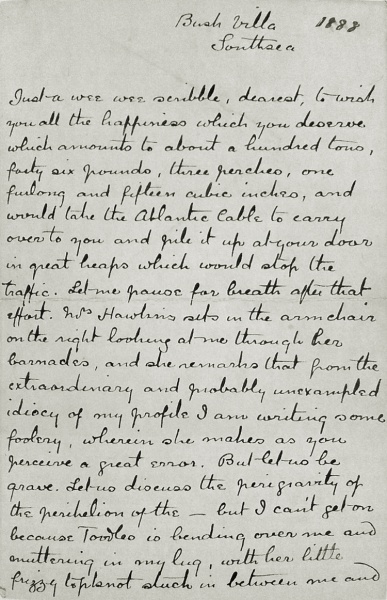 Bush Villa 1888
Southsea
Just a wee wee scribble, dearest, to wish
you all the happiness which you deserve
which amounts to about a hundred tons,
forty six pounds, three perches, one
furlong and fifteen cubic inches, and
would take the Atlantic Cable to carry
over to you and pile it up at your door
in great heaps which would stop the
traffic. Let me pause for breath after that
effort. Mrs Hawkins sits in the armchair
on the right looking at me through her
barnacles, and she remarks that from the
extraordinary and probably unexampled
idiocy of my profile I am writing some
foolery, wherein she makes as you
perceive a great error. But let us be
grave. Let us discuss the perigravity of
the perihelion of the — but I can't get on
because Toodles is bending over me and
muttering in my lug, with her little
frizzy topknot stuck in between me and